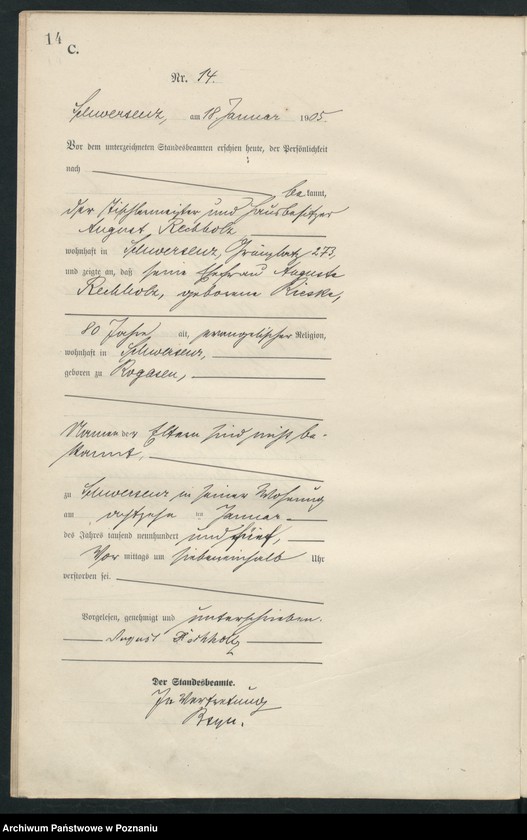 14
C.
Nr. 14.
Schwersenz, am 18 Januar 1905.
Vor dem unterzeichneten Standesbeamten erschien heute, der Persönlichkeit
nach
be kannt,
der Tischlermeister und Hausbesitzer
August Reichholz
wohnhaft in Schwersenz,
und zeigte an, daß seine Ehefrau Auguste
Reichholz, geborene Rieske,
80 Jahre alt, evangelischer Religion,
wohnhaft in Schwersenz,
geboren zu Rogasen,
Namen der Eltern sind nicht be-
kannt,
zu Schwersenz in seiner Wohnung
am achtzehn ten Januar
des Jahres tausend neunhundert und fünf,
Vor mittags um siebeneinhalb Uhr
verstorben sei.
Vorgelesen, genehmigt und unterschrieben.
August
Der Standesbeamte.
In Vertretung
Archiwum Państwowe w Poznaniu